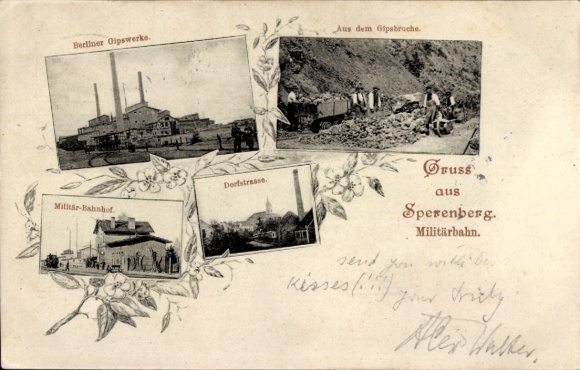 Berliner Gipswerke.
Aus dem Gipsbruche.
Militär-Bahnhof.
Dorfstrasse.
Gruss
aus
Sperenberg.
Militärbahn.
send you
kisses (!!!)
your
Walter.